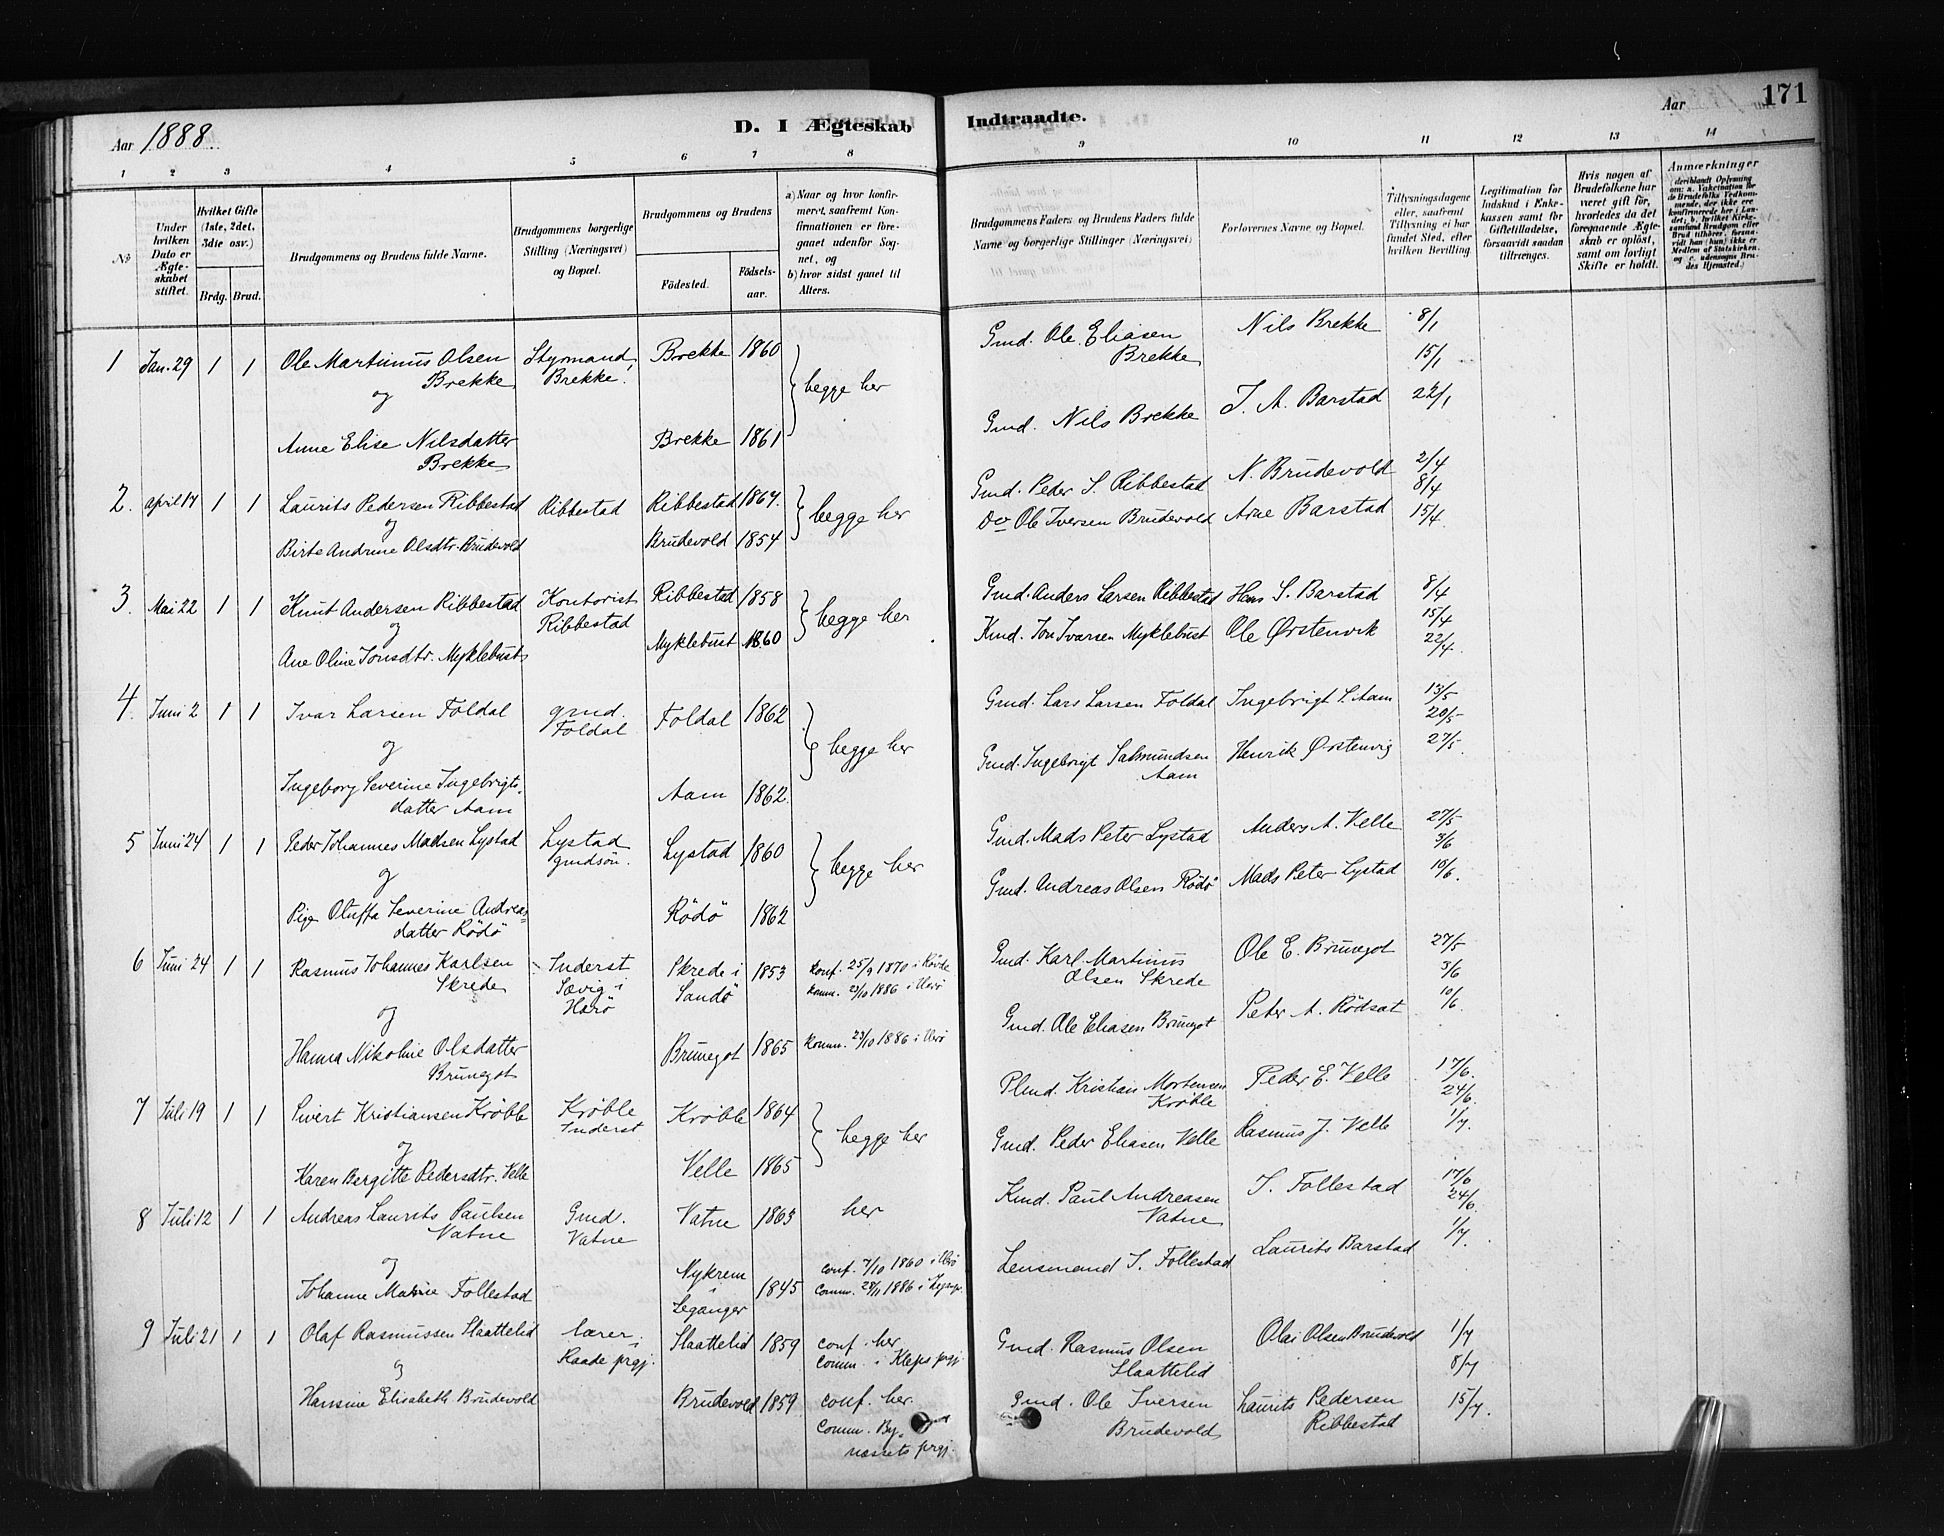 171
Aar 1888.
D. I Ægteskab Indtraadte.
Aar
1 2 3 4 5 6 7 8 9 10 11 12 13 14
No
Under hvilken Dato er Ægteskabet stiftet.
Hvilket Gifte (1ste, 2det, 3die osv.)
Brdg. Brud.
Brudgommens og Brudens fulde Navne.
Brudgommens borgerlige Stilling (Næringsvei) og Bopæl.
Brudgommens og Brudens
Födested. Födsels-aar.
a) Naar og hvor konfirmeret, saafremt Konfirmationen er foregaaet udenfor Sognet, og
b) hvor sidst gaaet til Alters.
Brudgommens Faders og Brudens Faders fulde Navne og borgerlige Stillinger (Næringsvei)
Forlovernes Navne og Bopæl.
Tillysningsdagene eller, saafremt Tillysning ei har fundet Sted, efter hvilken Bevilling.
Legitimation for Indskud i Enkekassen samt for Giftetilladelse, forsaavidt saadan tiltrænges.
Hvis nogen af Brudefolkene har været gift för, hvorledes da det foregaaende Ægteskab er oplöst, samt om lovligt Skifte er holdt.
Anmærkninger
1 Jan. 29 1 1 Ole Martinus Olsen Brekke Styrmand, Brekke. Brekke 1860 begge her Gmd. Ole Eliasen Brekke Nils Brekke 8/1 15/1
og
Anne Elise Nilsdatter Brekke Brekke 1861 Gmd. Nils Brekke J. A. Barstad 22/1
2. April 17 1 1 Laurits Pedersen Ribbestad Ribbestad Ribbestad 1864. begge her Gmd. Peder S. Ribbestad N. Brudevold 2/4 8/4
og
Birte Andrine Olsdtr. Brudevold Brudevold 1854 Do Ole Iversen Brudevold Arne Barstad 15/4.
3. Mai 22 1 1 Knut Andersen Ribbestad Kontorist Ribbestad Ribbestad 1858 begge her Gmd. Anders Larsen Ribbestad Hans S. Barstad 8/4
og
Ane Oline Jonsdtr. Myklebust Myklebust 1860 Kmd. Jon Ivarsen Myklebust Ole Ørstenvik 15/4 22/4.
4. Juni 2 1 1 Ivar Larsen Foldal gmd. Foldal Foldal 1862 begge her Gmd. Lars Larsen Foldal Ingebrigt S. Aam 13/5 20/5
og
Ingeborg Severine Ingebrigtsdatter Aam Aam 1862. Gmd. Ingebrigt Salmundsen Aam Henrik Ørstenvig 27/5.
5 Juni 24 1 1 Peder Johannes Madsen Lystad Lystad gmdsön. Lystad 1860 begge her Gmd. Mads Peter Lystad Anders A. Velle 27/5 3/6
og
Pige Oluffa Severine Andreasdatter Rödö Rödö 1862 Gmd. Andreas Olsen Rödö Mads Peter Lystad 10/6.
6 Juni 24 1 1 Rasmus Johannes Karlsen Skrede Inderst Sævig i Harö Skrede i Sandö 1853 konf. 25/9 1870 i Rövde komm. 23/10 1886 i Herö Gmd. Karl Martinus Olsen Skrede Ole E. Brunegot 27/5 3/6
og
Hanna Nikoline Olsdatter Brunegot Brunegot 1865 komm. 23/10 1886 i Herö Gmd. Ole Eliasen Brunegot Peter A. Rödsat 10/6.
7 Juli 19 1 1 Sivert Kristiansen Kröble Kröble Inderst Kröble 1864 begge her Plmd. Kristian Mortensen Kröble Peder E. Velle 17/6. 24/6.
og
Karen Bergitte Pedersdtr. Velle Velle 1865 Gmd. Peder Eliasen Velle Rasmus J. Velle 1/7.
8 Juli 12 1 1 Andreas Laurits Paulsen Vatne Gmd. Vatne Vatne 1863 her Kmd. Paul Andreasen Vatne S. Follestad 17/6 24/6.
og
Johanne Marie Follestad Nykrem i Leganger 1845 conf. 7/10 1860 i Herö comm. 28/11 1886 i Legang. Lensmand S. Follestad Laurits Barstad 1/7.
9 Juli 21 1 1 Olaf Rasmussen Slaattelid lærer i Raade prgj. Slaattelid 1859 conf. her comm. i Kleps prgj Gmd. Rasmus Olsen Slaattelid Olai Olsen Brudevold 1/7 8/7
og
Hansine Elisabeth Brudevold Brudevold 1859 conf. her. comm. Bynæssets prgj. Gmd. Ole Iversen Brudevold Laurits Pedersen Ribbestad 15/7.